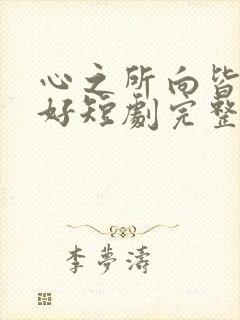 心之所向皆
好短劇完整
李夢濤